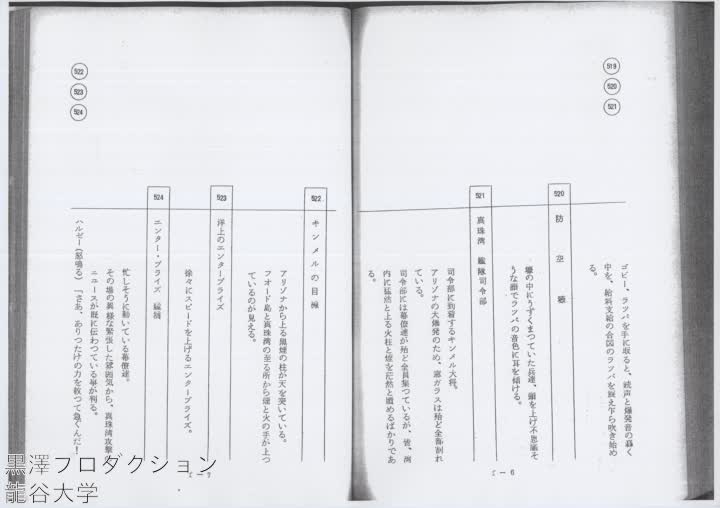 519
520
521
ゴビー、ラツパを手に取ると、銃声と爆発音の轟く
中を、給料支給の合図のラツパを嚇え乍ら吹き始め
る。
520 防空壕
壕の中にうずくまつていた兵達、頭を上げ不思議そ
うな顔でラツパの音色に耳を傾ける。
521 真珠湾 艦隊司令部
司令部に到着するキンメル大将。
アリゾナの大爆発のため、窓ガラスは殆ど全部割れ
ている。
司令部には幕僚達が殆ど全員集つているが、皆、湾
内に猛然と上る火柱と煙を茫然と眺めるばかりであ
る。
I－6
522
523
524
522 キンメルの目線
アリゾナから上る黒煙の柱が天を突いている。
フオード島と真珠湾の至る所から煙と火の手が上つ
ているのが見える。
523 洋上のエンタープライズ
徐々にスピードを上げるエンタープライズ。
524 エンター・プライズ 艦橋
忙しそうに動いている幕僚達。
その場の異様な緊張した雰囲気から、真珠湾攻撃の
ニユースが既に伝わつている事が判る。
ハルゼー（怒鳴る）「さあ、ありつたけの力を救つて急ぐんだ！
I－7
黒澤プロダクション
龍谷大学